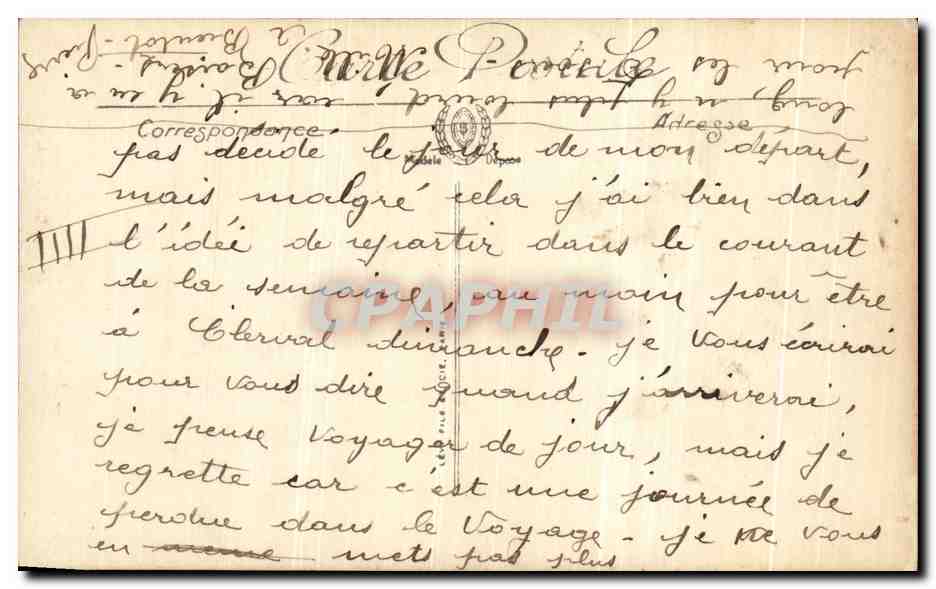 Carte Postale
Correspondance
Adresse
Modèle Déposé
pas décidé le jour de mon départ,
mais malgré cela j'ai bien dans
l'idée de repartir dans le courant
de la semaine, au moin pour être
à Clerval dimanche. je vous écrirai
pour vous dire quand j'arriverai,
je pense voyager de jour, mais je
regrette car c'est une journée de
perdue dans le voyage. je ne vous
en meme mets pas plus
long, n'y plus lourd car il y en a
pour les Baisers
a Bientot
LEVY FILS & CIE. PARIS
CPAPHIL